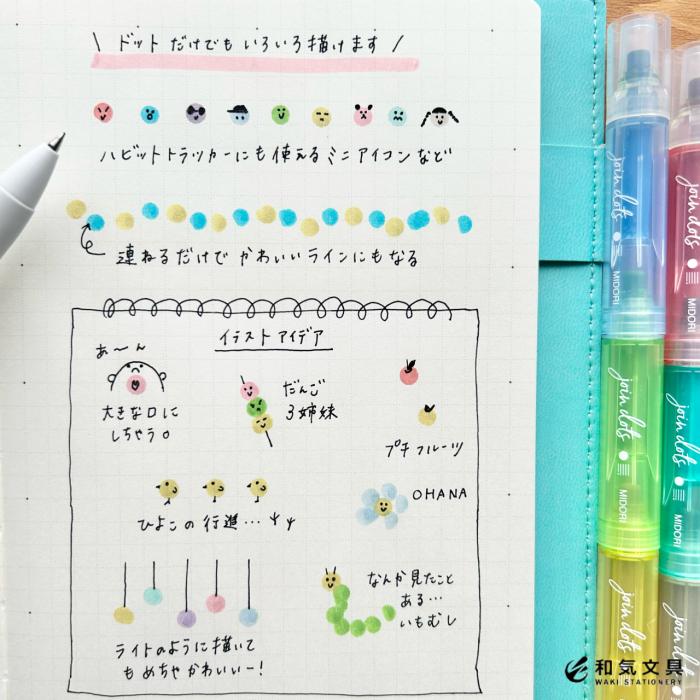 \ ドットだけでもいろいろ描けます /
ハビットトラッカーにも使えるミニアイコンなど
連ねるだけでかわいいラインにもなる
イラストアイデア
あ〜ん
大きな口に
しちゃう。
だんご
3姉妹
プチフルーツ
ひよこの行進…
OHANA
ライトのように描いて
もめちゃかわいいー!
なんか見たこと
ある…
いもむし
join dots
MIDORI
join dots
MIDORI
join dots
join dots
MIDORI
join dots
MIDORI
join dots
和気文具
WAKI STATIONERY